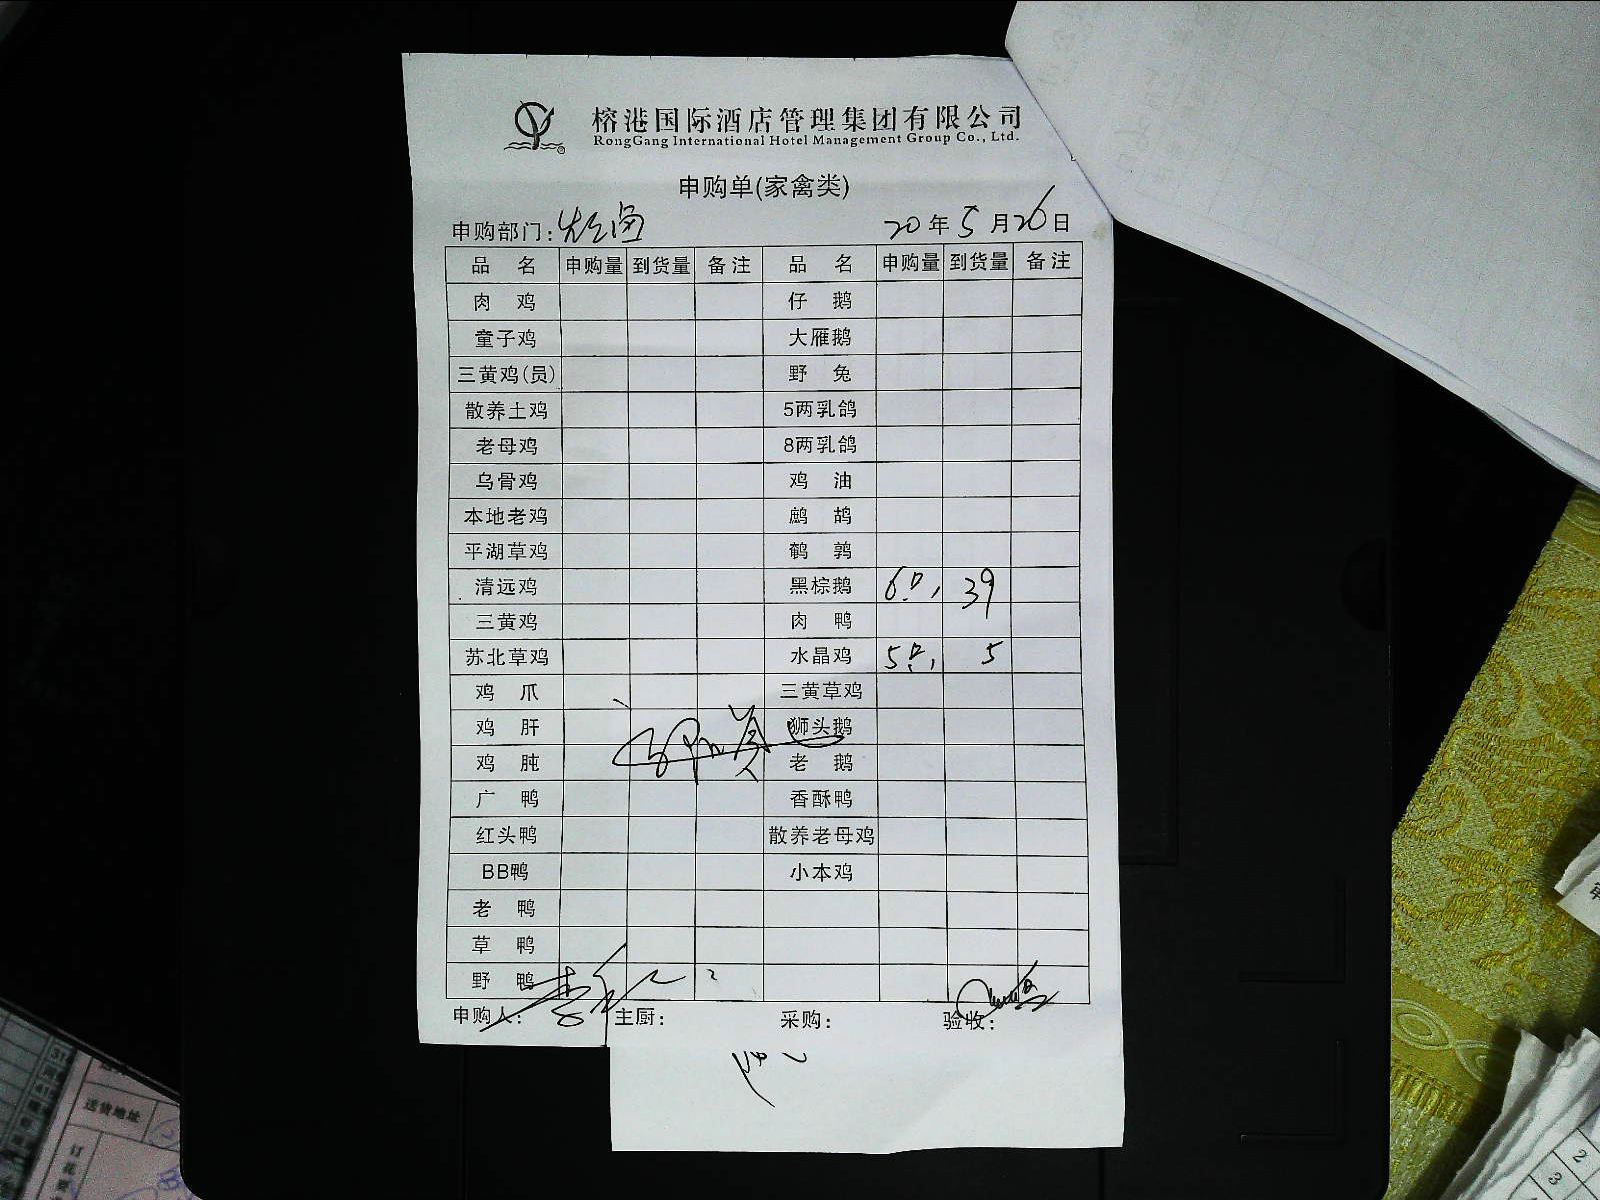 榕港国际酒店管理集团有限公司
RongGang International Hotel Management Group Co., Ltd.
申购单(家禽类)
申购部门:
20年5月26日
品 名 申购量 到货量 备注 品 名 申购量 到货量 备注
肉 鸡 仔 鹅
童子鸡 大雁鹅
三黄鸡(员) 野 兔
散养土鸡 5两乳鸽
老母鸡 8两乳鸽
乌骨鸡 鸡 油
本地老鸡 鹧 鸪
平湖草鸡 鹌 鹑
清远鸡 黑棕鹅 6只, 39
三黄鸡 肉 鸭
苏北草鸡 水晶鸡 5只, 5
鸡 爪 三黄草鸡
鸡 肝 狮头鹅
鸡 肫 老 鹅
广 鸭 香酥鸭
红头鸭 散养老母鸡
BB鸭 小本鸡
老 鸭
草 鸭
野 鸭
申购人: 主厨: 采购: 验收:
送货地址
2
3